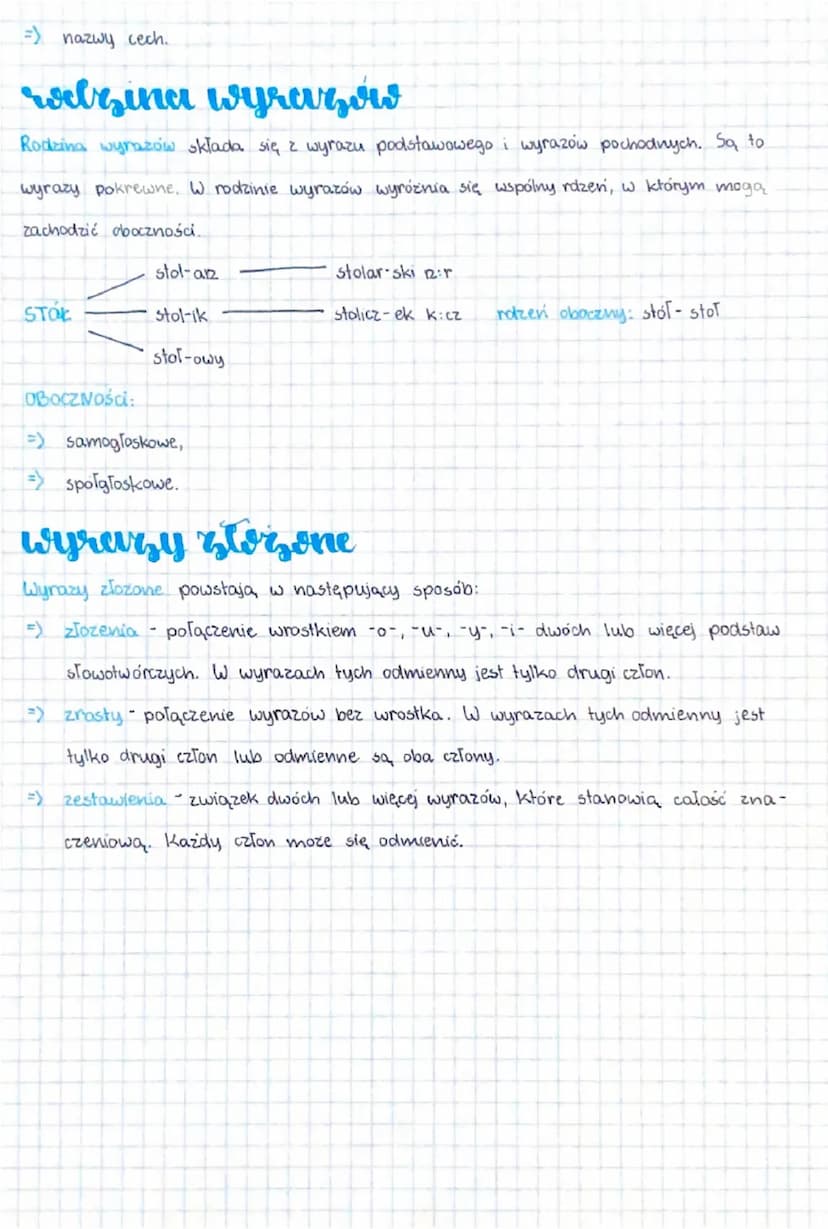 => nazwy cech.
rodzina wyrazów
Rodzina wyrazów składa się z wyrazu podstawowego i wyrazów pochodnych. Są to
wyrazy pokrewne. W rodzinie wyrazów wyróżnia się wspólny rdzeń, w którym mogą
zachodzić oboczności.
stol-arz stolar-ski rz:r
STÓŁ stol-ik stolicz-ek k:cz rdzeń oboczny: stół- stoł
stoł-owy
OBOCZNOŚCi:
=> samogłoskowe,
=> spółgłoskowe.
wyrazy złożone
Wyrazy złożone powstają w następujący sposób:
=> złożenia - połączenie wrostkiem -o-, -u-, -y-, -i- dwóch lub więcej podstaw
słowotwórczych. W wyrazach tych odmienny jest tylko drugi człon.
=> zrosty - połączenie wyrazów bez wrostka. W wyrazach tych odmienny jest
tylko drugi człon lub odmienne są oba człony.
=> zestawienia - związek dwóch lub więcej wyrazów, które stanowią całość zna-
czeniową. Każdy człon może się odmienić.